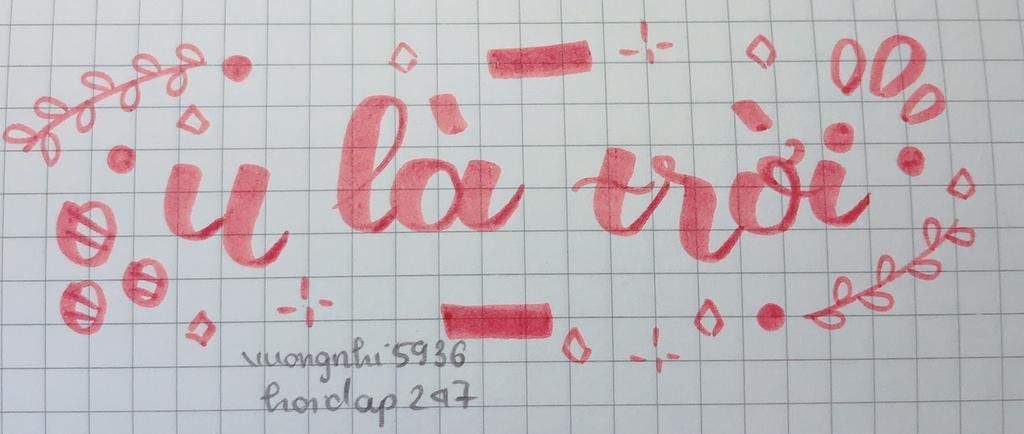 u là trời
vuongnhi5936
hoidap247